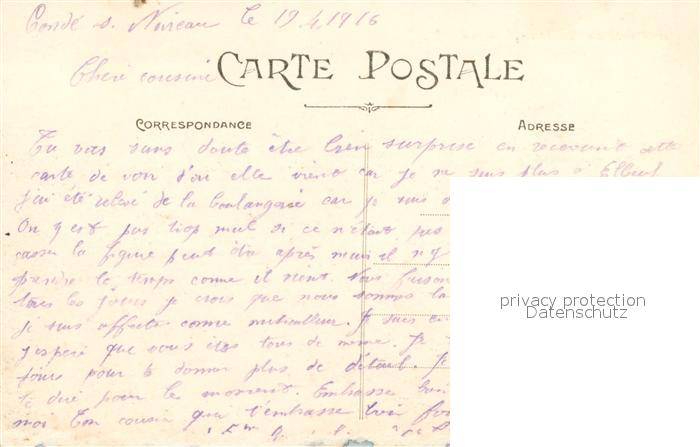 Condé s. Noireau le 19.4.1916
Cheri cousine
CARTE POSTALE
CORRESPONDANCE
ADRESSE
Tu vas sans doute être bien surprise en recevant cette
carte de voir d'ou elle vient car je ne suis plus à
j'ai été relevé de la boulangerie car je suis
On y est pas trop mal si ce n'etait pas
casser la figure peut être après mais il n'y
prendre le temps comme il vient. Nous faisons
tous les jours je crois que nous sommes la
je suis affecté comme mitrailleur. Je suis en
j'espere que vous êtes tous de meme. Je
jours pour te donner plus de détail. Je
te dire pour le moment. Embrasse bien
moi Ton cousin qui t'embrasse bien fort
privacy protection
Datenschutz